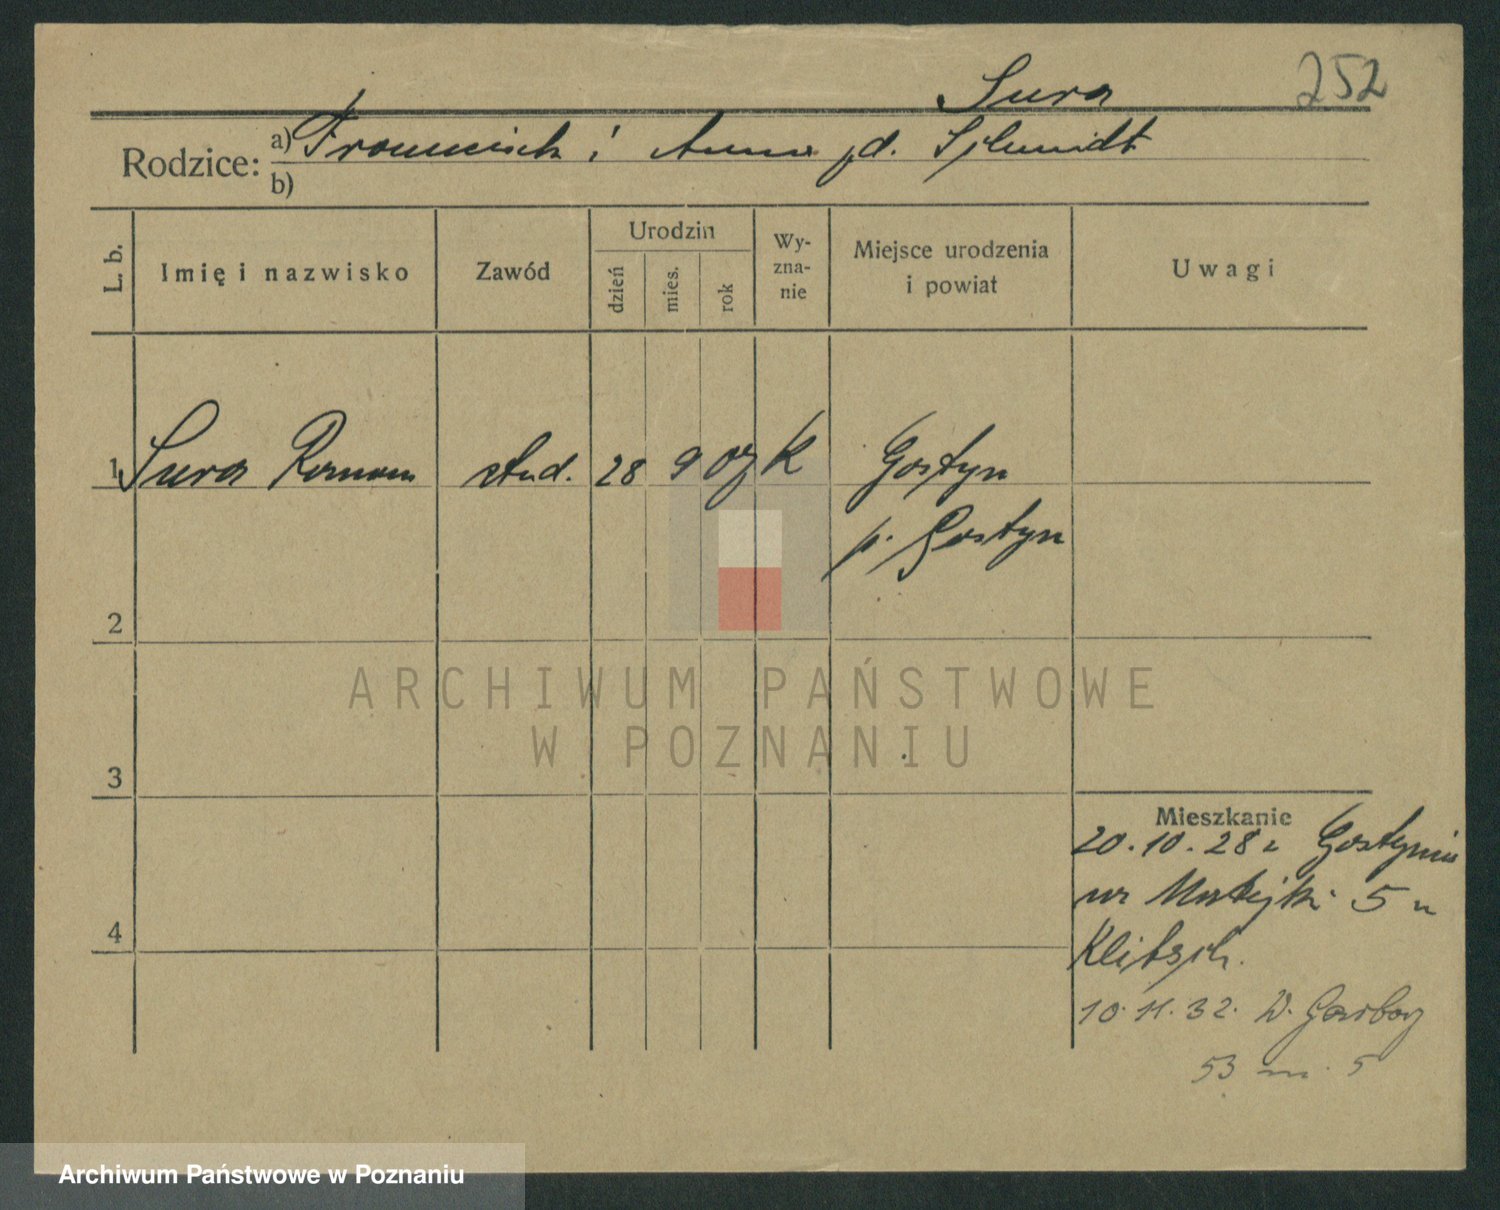 Sura 252
Rodzice: a) Franciszek i Anna zd. Schmidt
b)
L. b. Imię i nazwisko Zawód Urodzin dzień mies. rok Wy-zna-nie Miejsce urodzenia i powiat Uwagi
1 Sura Roman stud. 28 9 07 k Gostyn
p. Gostyn
2
ARCHIWUM PAŃSTWOWE
W POZNANIU
3
Mieszkanie
20.10.28 z Gostynia
Matejki 5 u
4 Klitsch.
10.11.32. W. Garbary
53 m. 5
Archiwum Państwowe w Poznaniu